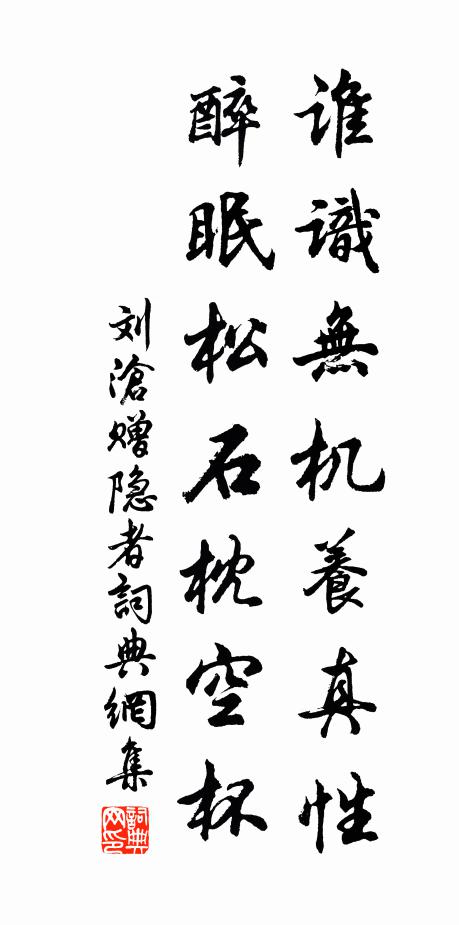 誰識無机養真性
醉眠松石枕空杯
刘滄赠隐者詞典網集
詞典网印